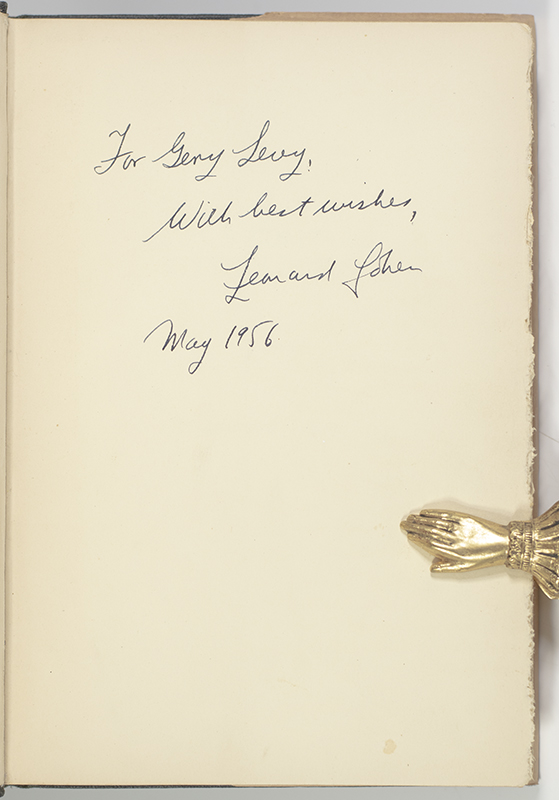 For Gery Levy,
With best wishes,
Leonard Cohen
May 1956